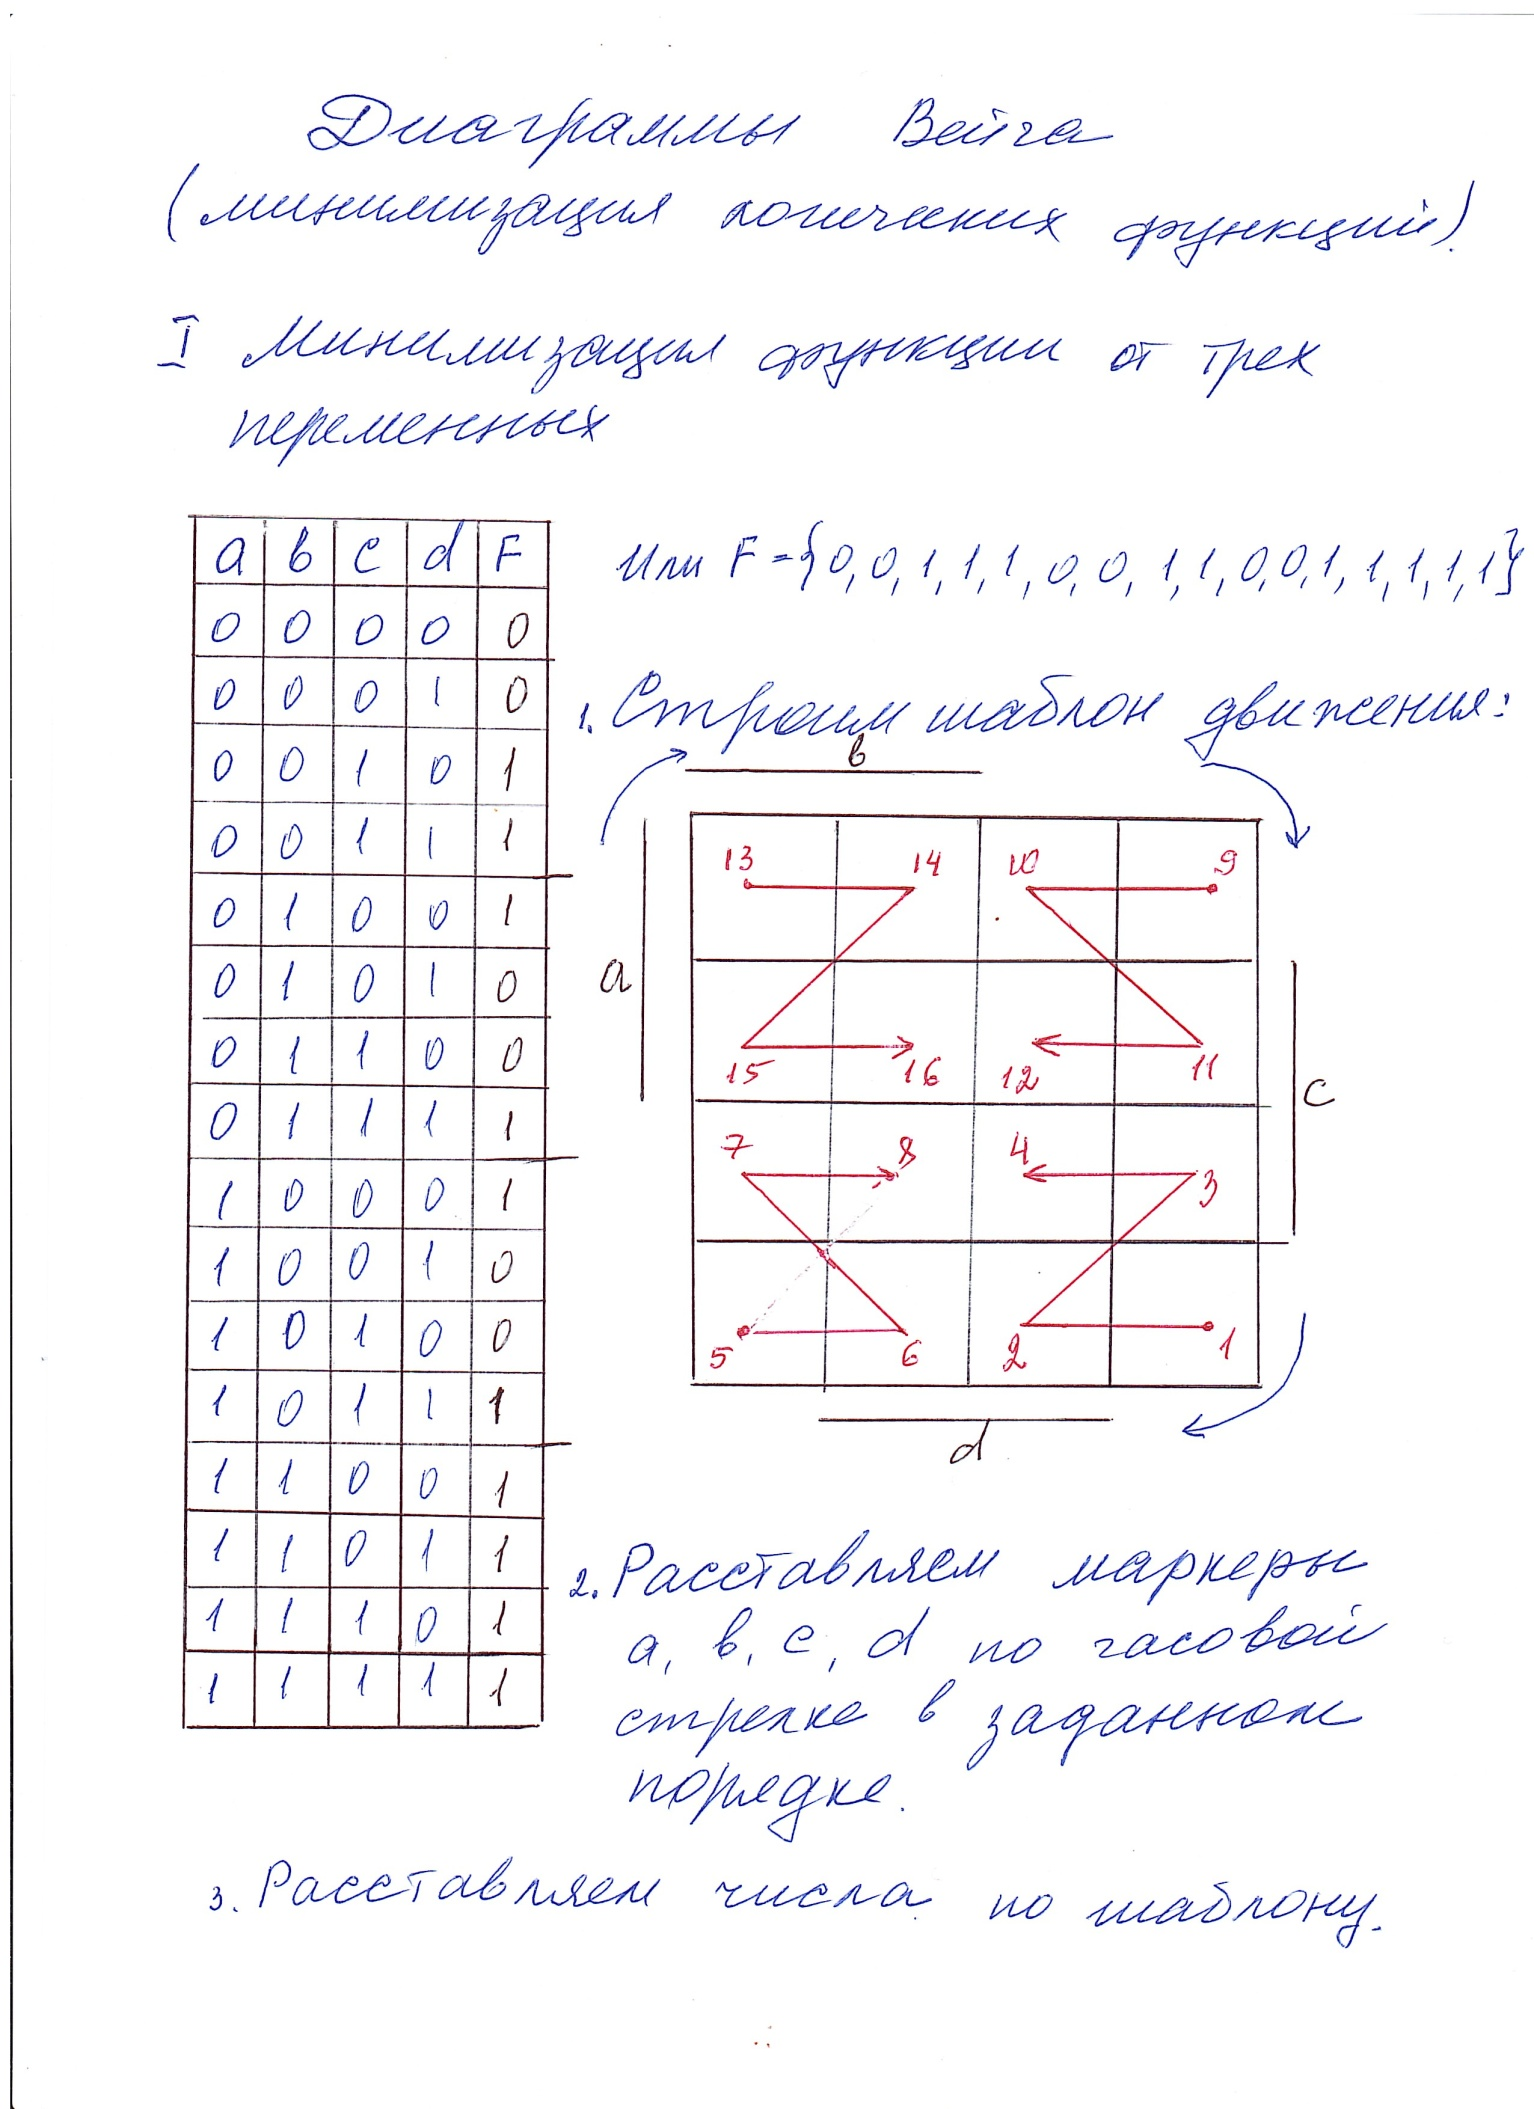 Диаграммы Вейча
(минимизация логических функций).
I Минимизация функции от трех
переменных
a b c d F
0 0 0 0 0
0 0 0 1 0
0 0 1 0 1
0 0 1 1 1
0 1 0 0 1
0 1 0 1 0
0 1 1 0 0
0 1 1 1 1
1 0 0 0 1
1 0 0 1 0
1 0 1 0 0
1 0 1 1 1
1 1 0 0 1
1 1 0 1 1
1 1 1 0 1
1 1 1 1 1
Или F = {0,0,1,1,1,0,0,1,1,0,0,1,1,1,1,1}
1. Строим шаблон движения:
b
13 14 10 9
a
15 16 12 11
c
7 8 4 3
5 6 2 1
d
2. Расставляем маркеры
a, b, c, d по часовой
стрелке в заданном
порядке.
3. Расставляем числа по шаблону.